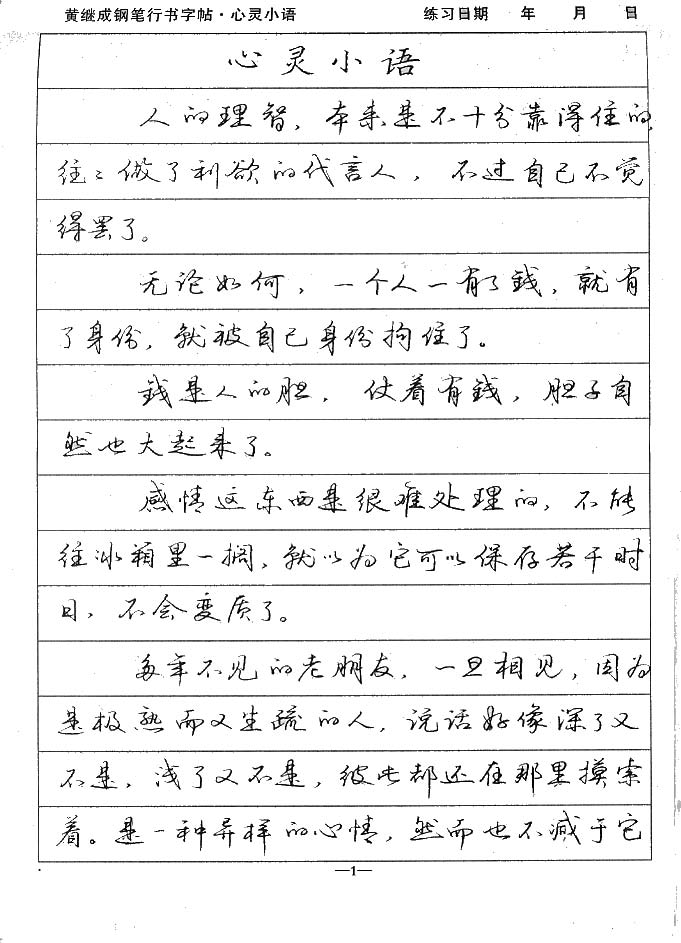 黄继成钢笔行书字帖·心灵小语 练习日期 年 月 日
心灵小语
人的理智，本来是不十分靠得住的，
往往做了利欲的代言人，不过自己不觉
得罢了。
无论如何，一个人一有了錢，就有
了身份，就被自己身份拘住了。
錢是人的胆，仗着有錢，胆子自
然也大起来了。
感情这东西是很难处理的，不能
往冰箱里一搁，就以为它可以保存若干时
日，不会变质了。
每年不见的老朋友，一旦相见，因为
是极熟而又生疏的人，说话好像深了又
不是，浅了又不是，彼此都还在那里摸索
着。是一种异样的心情，然而也不减于它
—1—